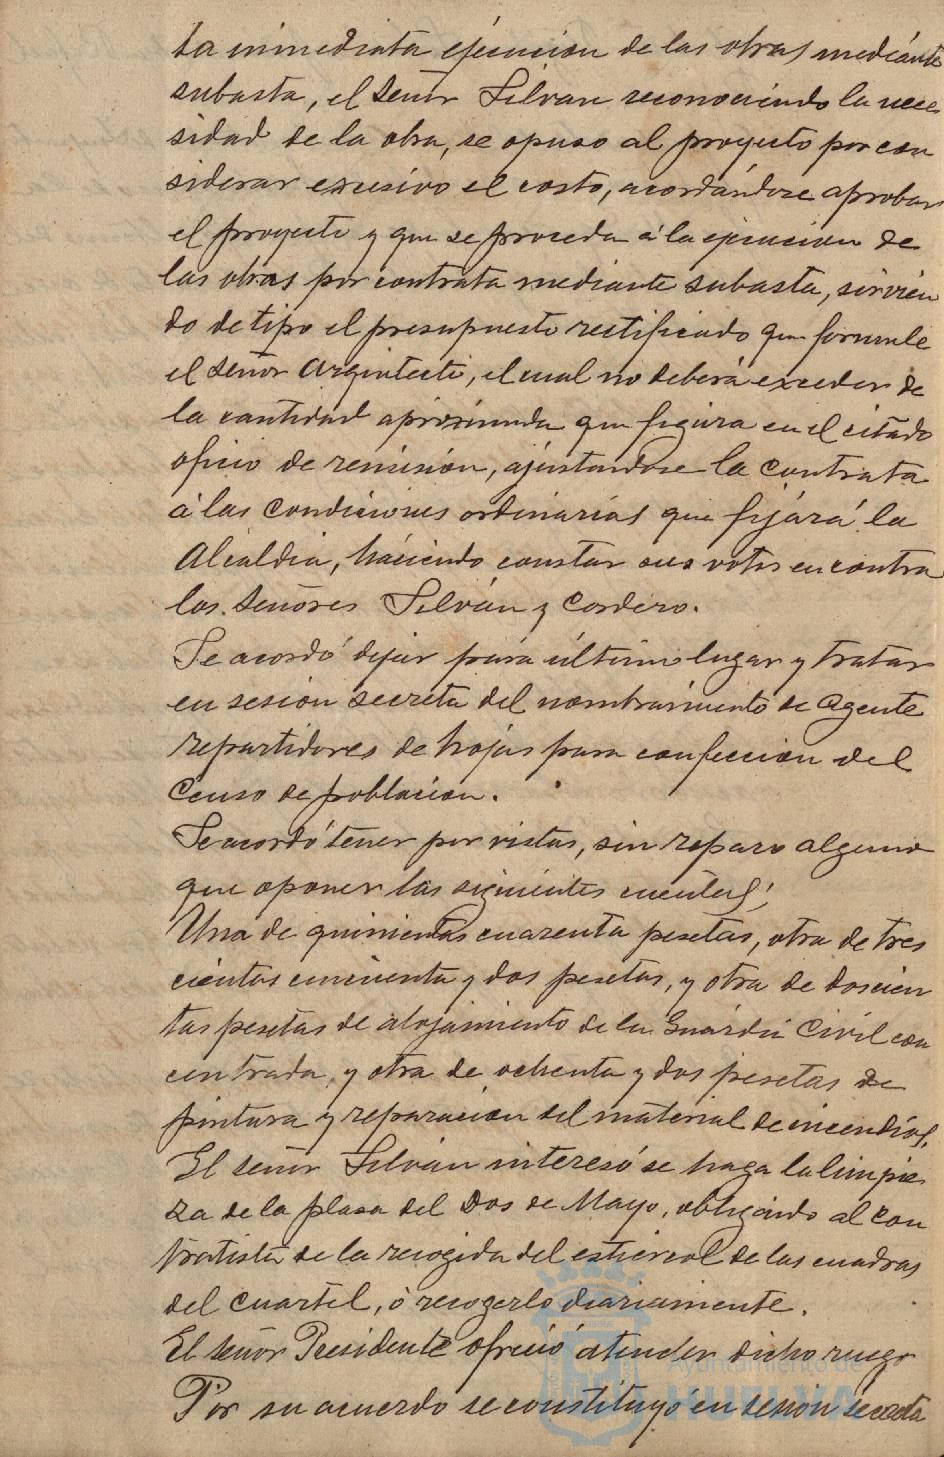 la inmediata ejecucion de las obras mediante
subasta, el Señor Silvan reconociendo la nece
sidad de la obra, se opuso al proyecto por con
siderar excesivo el costo, acordándose aprobar
el proyecto y que se proceda á la ejecucion de
las obras por contrata mediante subasta, sirvien
do de tipo el presupuesto rectificado que formule
el Señor Arquitecto, el cual no deberá exceder de
la cantidad aproximada que figura en el citado
oficio de remision, ajustandose la contrata
á las condiciones ordinarias que fijará la
Alcaldia, haciendo constar sus votos en contra
los Señores Silván y Cordero.
Se acordó dejar para último lugar y tratar
en sesion secreta del nombramiento de Agente
repartidores de hojas para confeccion del
Censo de poblacion.
Se acordó tener por vistas, sin reparo alguno
que oponer las siguientes cuentas;
Una de quinientas cuarenta pesetas, otra de tres
cientas cincuenta y dos pesetas, y otra de doscien
tas pesetas de alojamiento de la Guardia Civil con
centrada, y otra de ochenta y dos pesetas de
pintura y reparacion del material de incendios.
El Señor Silván interesó se haga la limpie
za de la plasa del Dos de Mayo, obligando al con
tratista de la recogida del estiercol de las cuadras
del cuartel, á recogerlo diariamente.
El Señor Presidente ofreció atender dicho ruego
Por su acuerdo se constituyó en sesion secreta
Ayuntamiento de
HUELVA